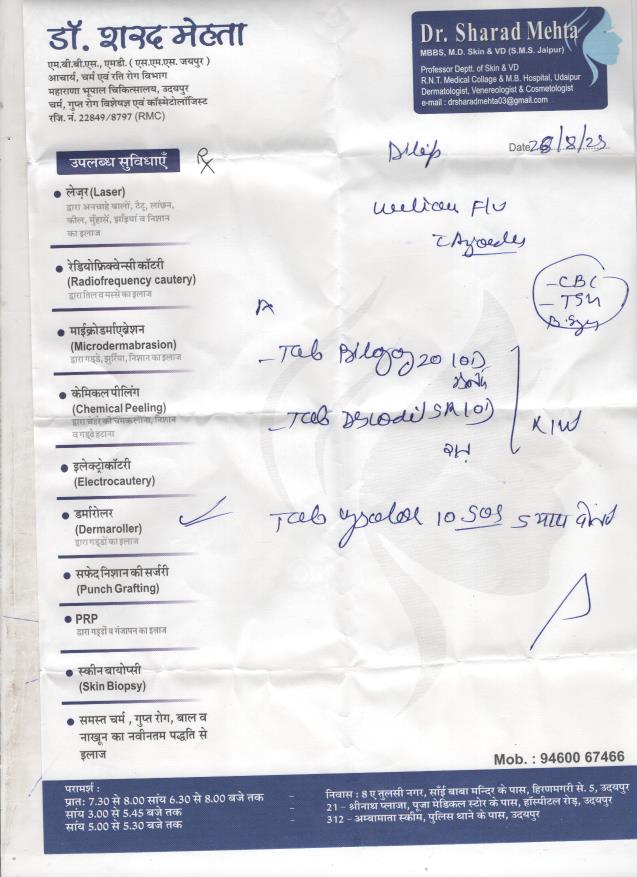 डॉ. शरद मेहता
एम.बी.बी.एस., एमडी. ( एस.एम.एस. जयपुर )
आचार्य, चर्म एवं रति रोग विभाग
महाराणा भूपाल चिकित्सालय, उदयपुर
चर्म, गुप्त रोग विशेषज्ञ एवं कॉस्मेटोलॉजिस्ट
रजि. नं. 22849/8797 (RMC)
Dr. Sharad Mehta
MBBS, M.D. Skin & VD (S.M.S. Jaipur)
Professor Deptt. of Skin & VD
R.N.T. Medical Collage & M.B. Hospital, Udaipur
Dermatologist, Venereologist & Cosmetologist
e-mail : drsharadmehta03@gmail.com
Dilip
Date 28/8/25
उपलब्ध सुविधाएँ
लेज़र (Laser)
द्वारा अनचाहे बालों, टैटू, लांछन,
कील, मुँहासें, झाँइयां व निशान
का इलाज
रेडियोफ्रिक्वेन्सी कॉटरी
(Radiofrequency cautery)
द्वारा तिल व मस्से का इलाज
माईक्रोडर्माएब्रेशन
(Microdermabrasion)
द्वारा गड्डे, झुर्रिया, निशान का इलाज
केमिकल पीलिंग
(Chemical Peeling)
द्वारा चेहरे की चमक लाना, निशान
व गड्ढे हटाना
इलेक्ट्रोकॉटरी
(Electrocautery)
डर्मारोलर
(Dermaroller)
द्वारा गड्डों का इलाज
सफेद निशान की सर्जरी
(Punch Grafting)
PRP
द्वारा गड्डों व गंजापन का इलाज
स्कीन बायोप्सी
(Skin Biopsy)
समस्त चर्म , गुप्त रोग, बाल व
नाखून का नवीनतम पद्धति से
इलाज
Rx
F/U
- CBC
- TSH
- Tab 20 (OD)
- Tab SR (OD)
Tab 10 SOS 5
Mob. : 94600 67466
परामर्श :
प्रातः 7.30 से 8.00 सांय 6.30 से 8.00 बजे तक - निवास : 8 ए तुलसी नगर, साँई बाबा मन्दिर के पास, हिरणमगरी से. 5, उदयपुर
सांय 3.00 से 5.45 बजे तक - 21 – श्रीनाथ प्लाजा, पूजा मेडिकल स्टोर के पास, हॉस्पीटल रोड़, उदयपुर
सांय 5.00 से 5.30 बजे तक - 312 – अम्बामाता स्कीम, पुलिस थाने के पास, उदयपुर